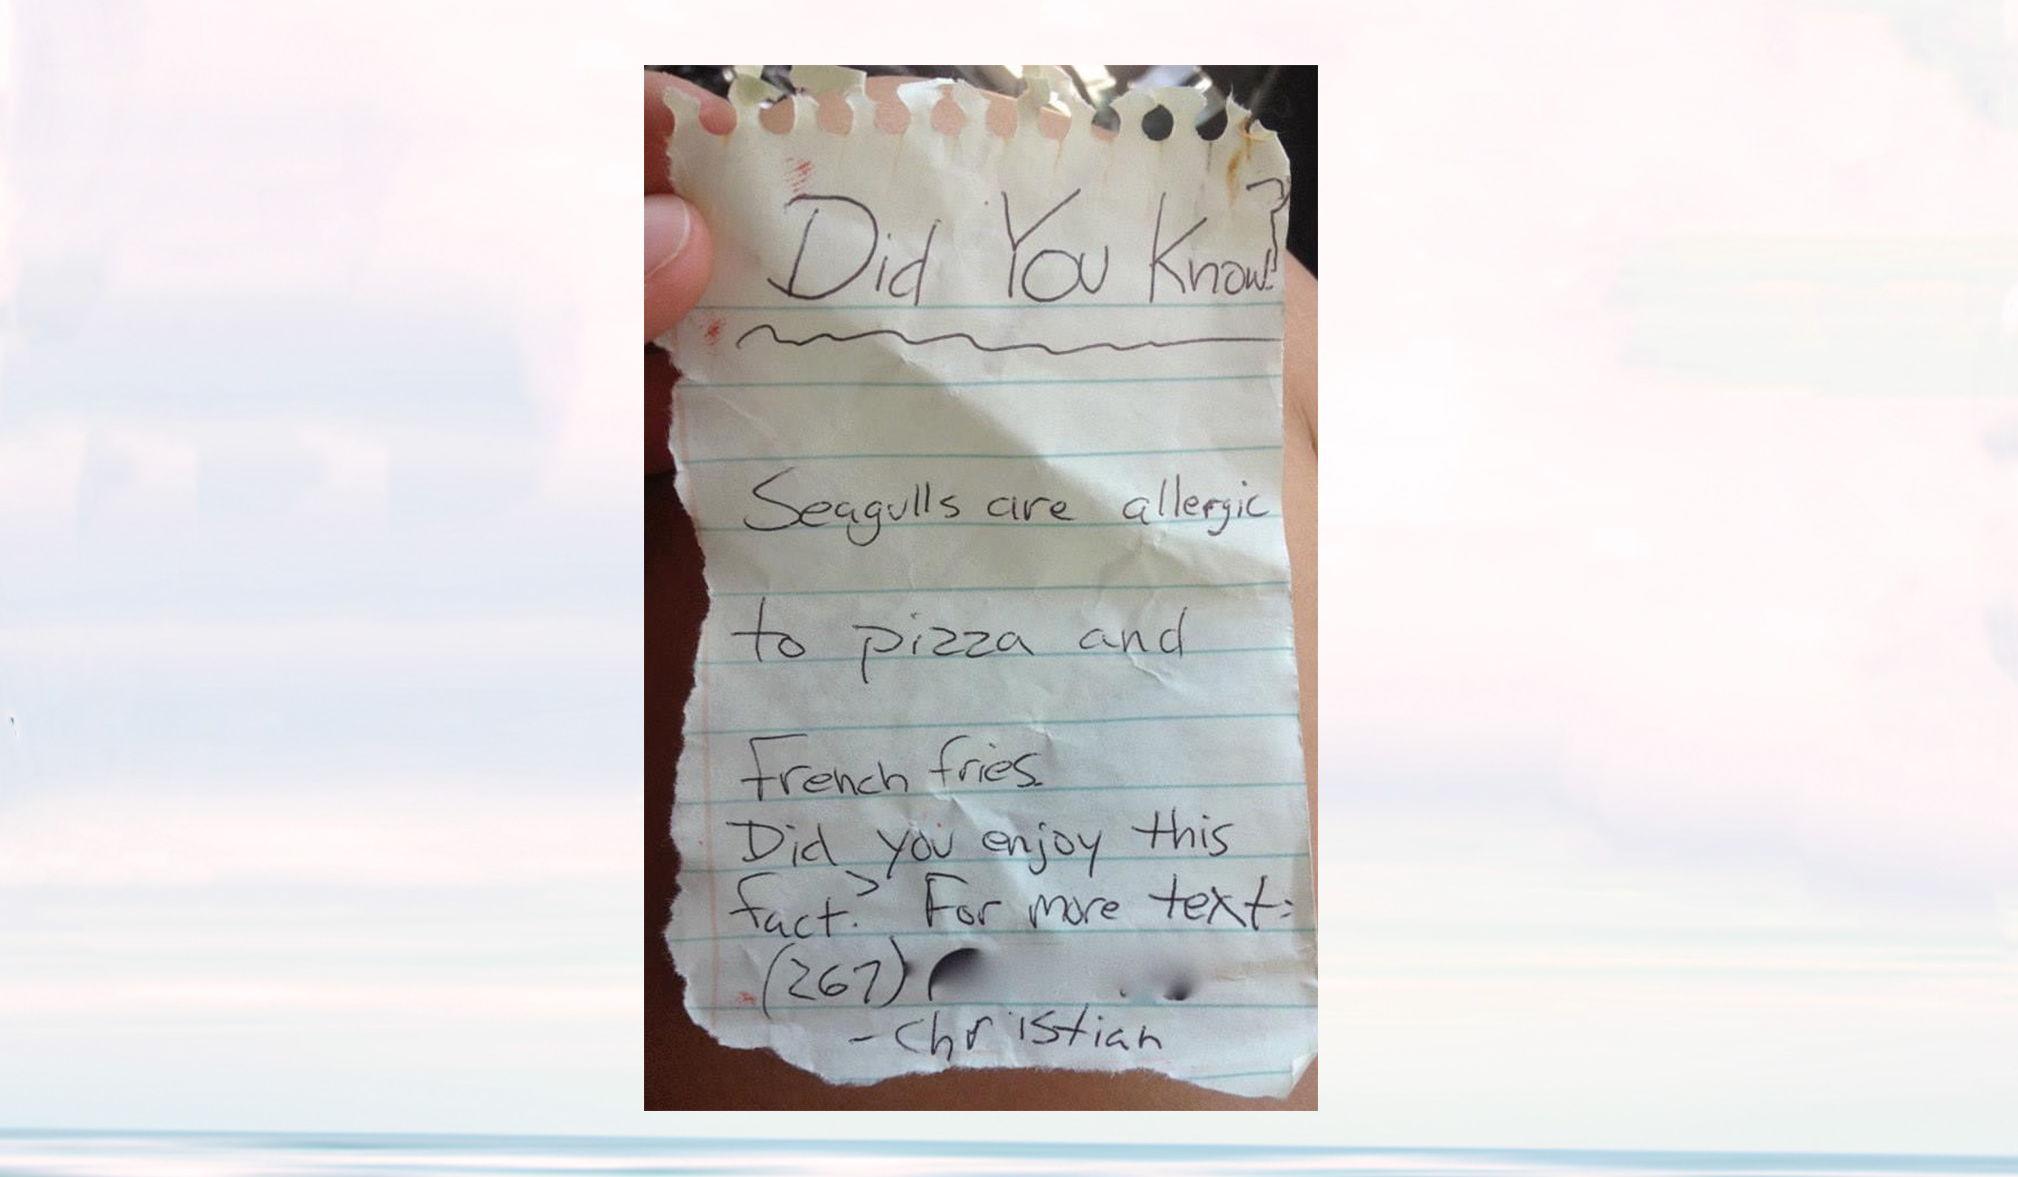 Did You Know?
Seagulls are allergic
to pizza and
French fries.
Did you enjoy this
fact? For more text:
(267)
-Christian